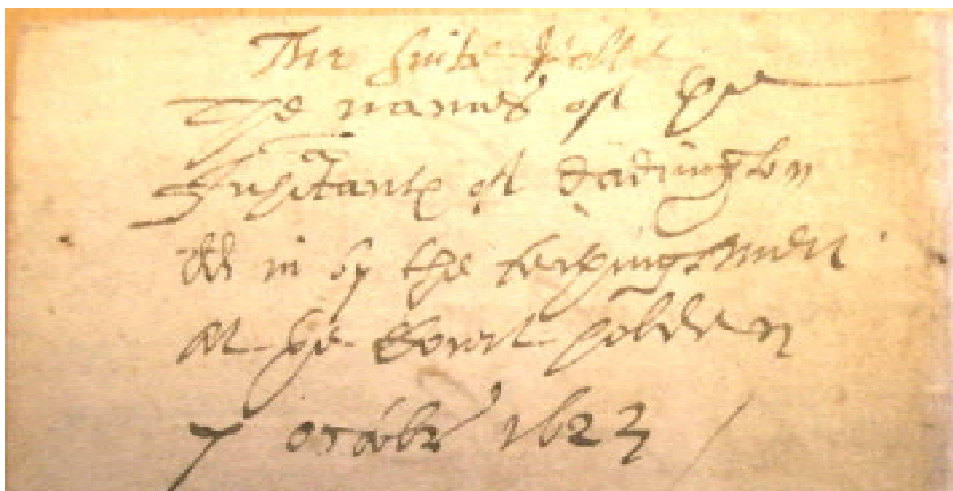 The suite Rolle
The names of ye
Inhitants of Dadington
dd in by the tethingmen
At ye Court holden
7 octobr 1623